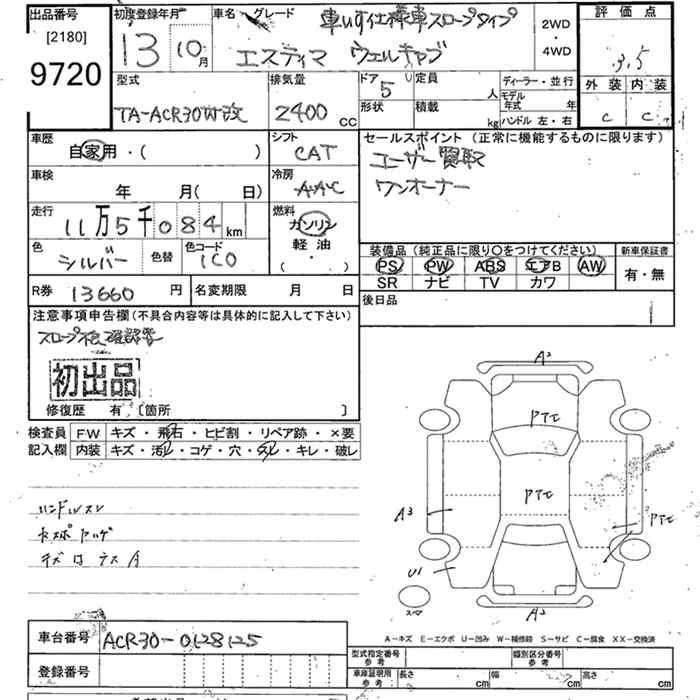 出品番号 初度登録年月 車名 グレード 車いす仕様車スロープタイプ 2WD ・ 4WD 評価点
[2180] 13 10月 エスティマ ウェルキャブ 3.5
9720 型式 TA-ACR30W改 排気量 2400 CC ドア 5 定員 人 ディーラー・並行
形状 積載 kg モデル年式 年 ハンドル 左・右 外装 C 内装 C
車歴 自家用・( ) シフト CAT セールスポイント (正常に機能するものに限ります)
ユーザー買取
ワンオーナー
車検 年 月( 日) 冷房 AAC
走行 11万5千084km 燃料 ガソリン 軽油 ( ・ )
色 シルバー 色替 色コード 1C0
装備品 (純正品に限り○をつけてください) 新車保証書
PS PW ABS エアB AW 有・無
SR ナビ TV カワ
R券 13660 円 名変期限 月 日 後日品
注意事項申告欄(不具合内容等は具体的に記入して下さい)
スロープ検確認書
初出品
修復歴 有 [箇所 ]
検査員 FW キズ・飛石・ヒビ割・リペア跡・×要
記入欄 内装 キズ・汚レ・コゲ・穴・スレ・キレ・破レ
ハンドルスレ
A2
PTC
PTC
A3 PTC
U1
スペア A2
A-キズ E-エクボ U-凹み W-補修跡 S-サビ C-腐食 XX-交換済
車台番号 ACR30-0128125
型式指定番号 参考 類別区分番号 参考
登録番号 車庫証明用 参考 長さ cm 幅 cm 高さ cm